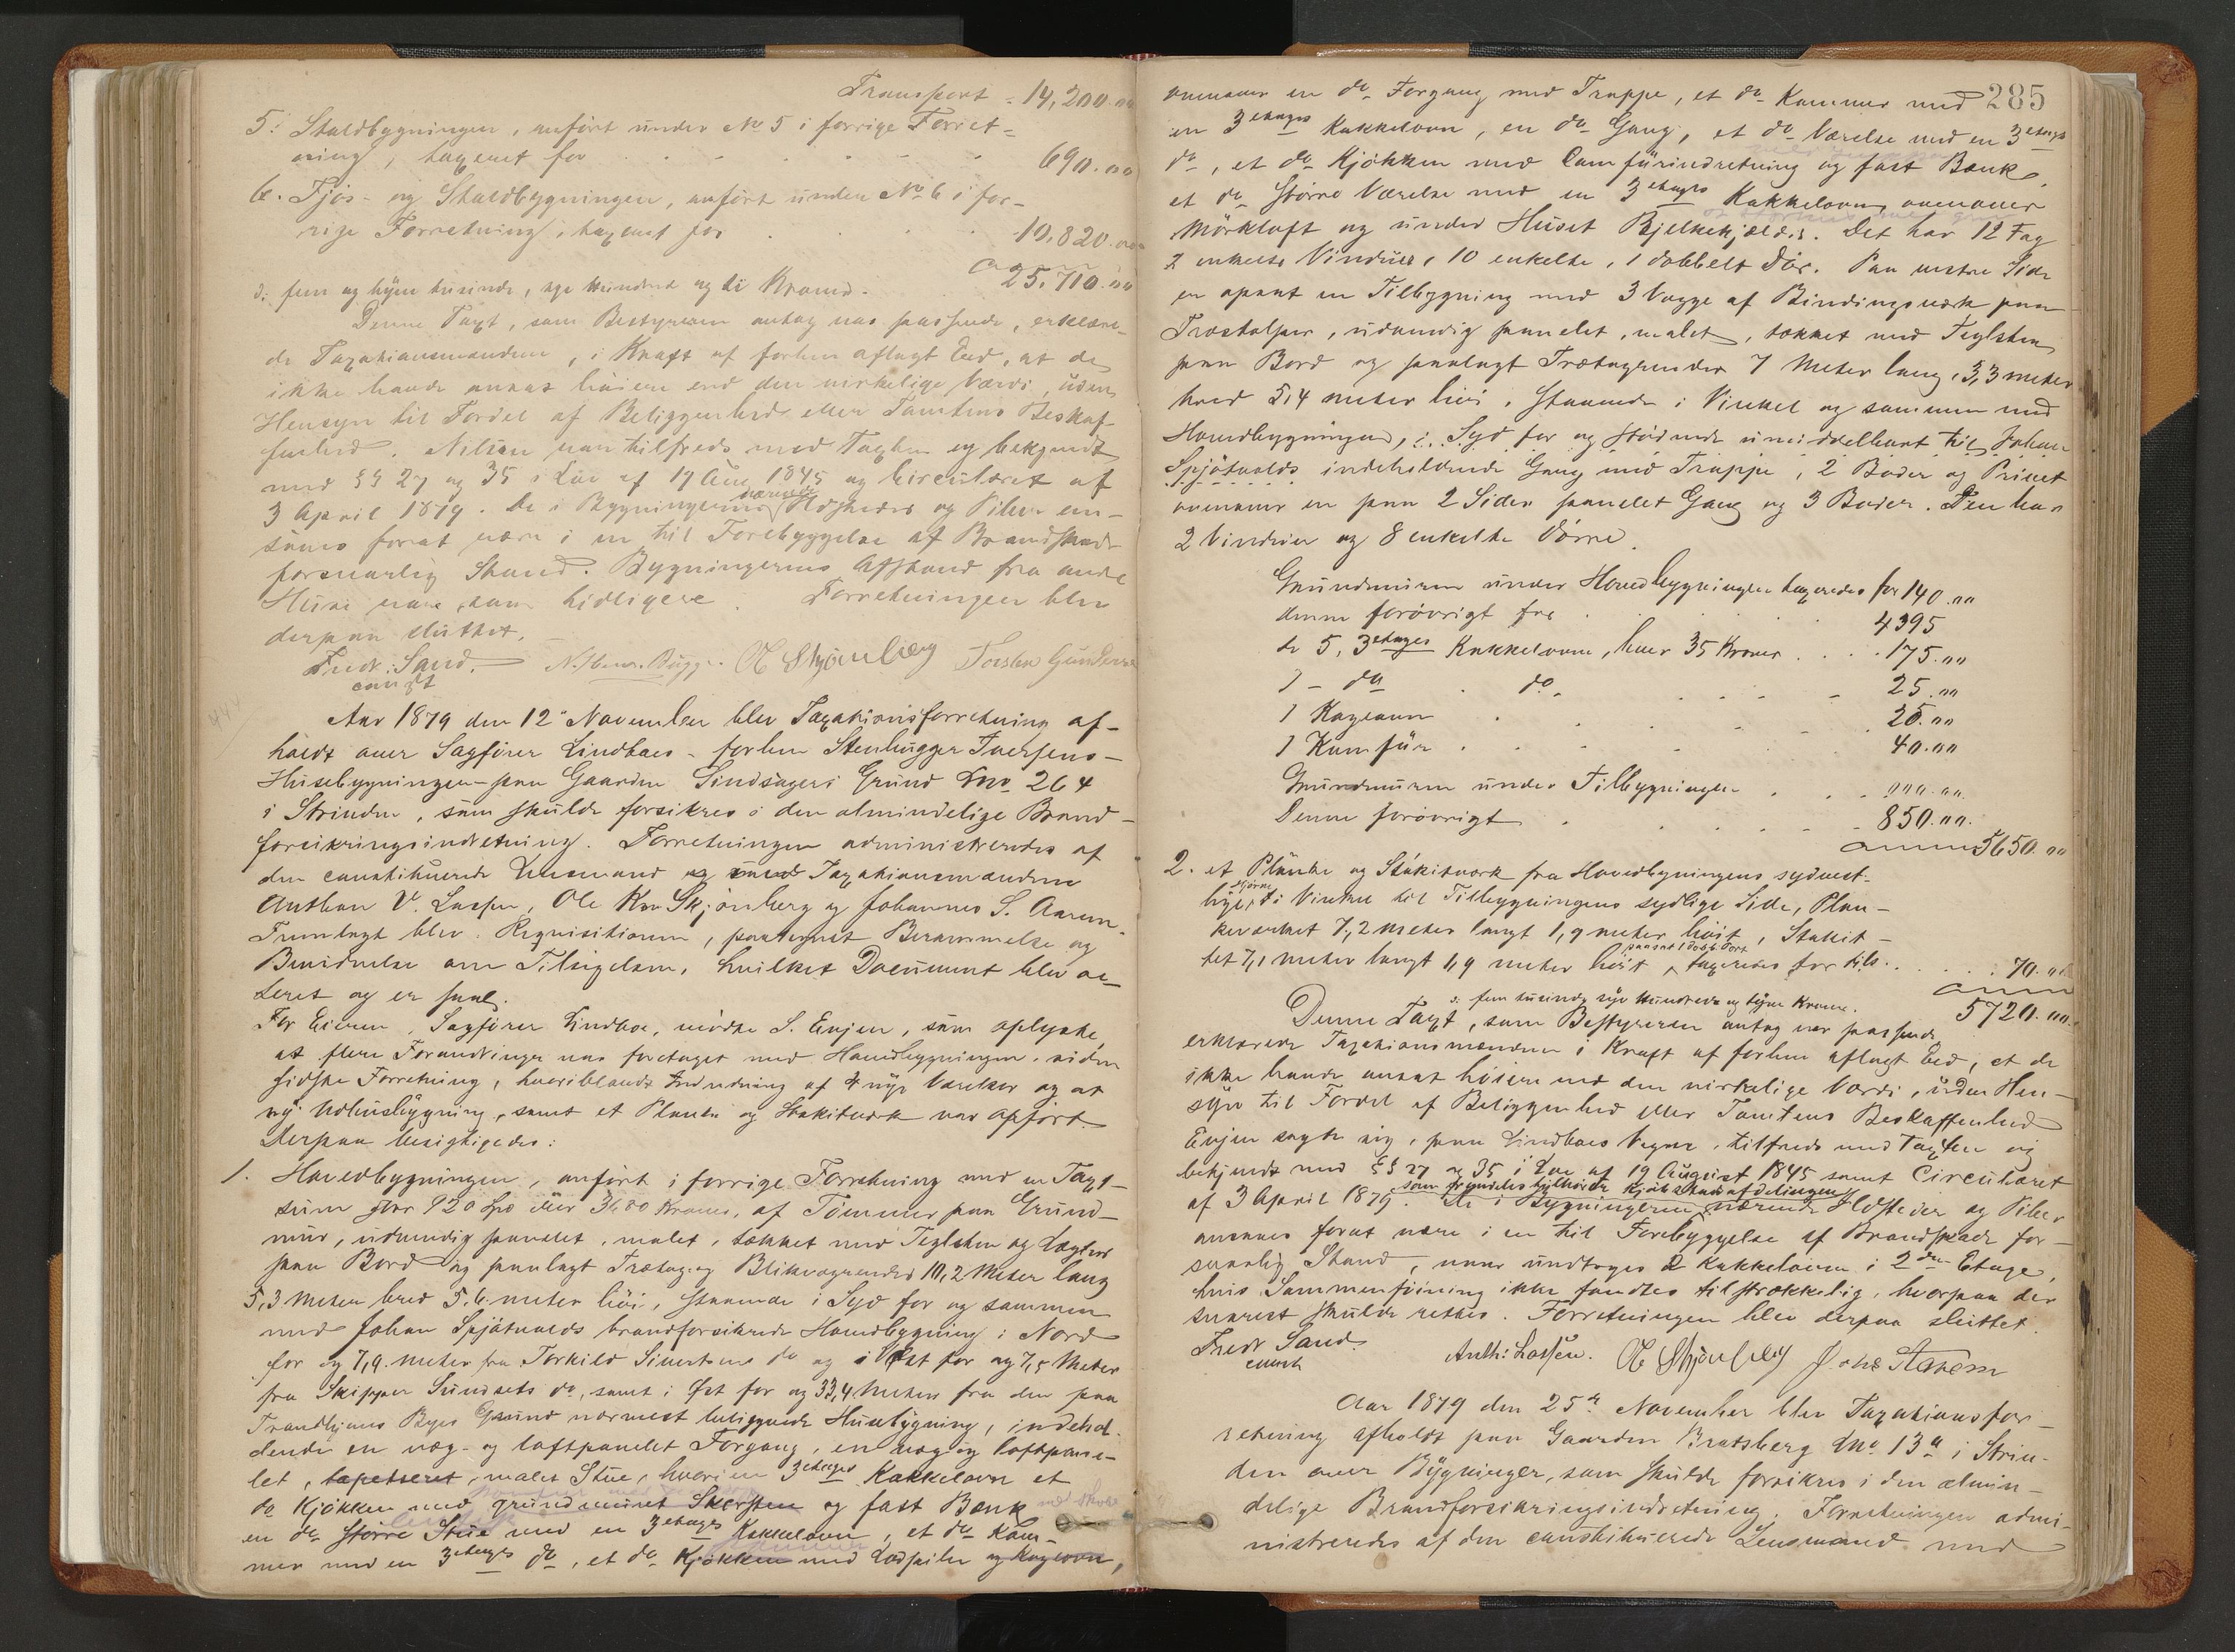 Transport = 14,200.00
5. Staldbygningen, anført under No 5 i forrige Forret=
ning, taxeret for 690.00
6. Fjøs- og Staldbygningen, anført under No 6 i for-
rige Forretning, taxeret for 10,820.00
25,710.00
ɔ: fem og tyve tusinde, syv hundrede og ti Kroner.
Denne Taxt, som Bestyreren antog var passende, erklære-
de Taxationsmændene, i Kraft af forhen aflagt Eed, at de
ikke havde ansat høiere end den virkelige Værdi, uden
Hensyn til Fordel af Beliggenhed eller Tomtens Beskaf-
fenhed. Nilsen var tilfreds med Taxten og bekjendt
med §§ 27 og 35 i Lov af 19 Aug 1845 og Circulæret af
3 April 1879. De i Bygningerne værende Ildsteder og Piber an-
saaes forat være i en til Forebyggelse af Brandskade
forsvarlig Stand. Bygningernes Afstand fra andre
Huse var som tidligere. Forretningen blev
derpaa sluttet.
Fredr. Sand. Bügge. O Skjønberg Torsten Gunders
const
Aar 1879 den 12te November blev Taxationsforretning af-
holdt over Sagfører Lindboes - forhen Stenhugger Iversens -
Husebygninger paa Gaarden Lindsagers Grund Lno 264
i Strinden, som skulde forsikres i den almindelige Brand-
forsikringsindretning. Forretningen administreredes af
den constituerede Lensmand og Taxationsmændene
Anthon V. Lassen, Ole Kr. Skjønberg og Johannes S. Aarem.
Fremlagt blev Requisitionen, paategnet Berammelse og
Bevidnelse om Tilsigelsen, hvilket Document blev oc-
teret og er saal.
For Eieren, Sagfører Lindboe, mødte S. Evjen, som oplyste,
at flere Forandringer var foretaget med Hovedbygningen, siden
sidste Forretning, hvoriblandt Indredning af 4 nye Værelser og at
ny Udhusbygning, samt et Planke og Stakitværk var opført.
Derpaa besigtigedes:
1. Hovedbygningen, anført i forrige Forretning med en Taxt-
sum stor 920 Spd eller 3680 Kroner, af Tømmer paa Grund-
mur, udvendig panelet, malet, tækket med Teglsten og Lægter
paa Bord og paalagt Trætag og Blikvagrender 10,2 Meter lang
5,3 Meter bred 5,6 meter høi, staaende i Syd for og sammen
med Johan Spjøtvolds brandforsikrede Hovedbygning i Nord
for og 7,9 meter fra Torkild Sivertsens do og i Vest for og 7,5 Meter
fra Skipper Sundsets do, samt i Øst for og 33,4 Meter fra den paa
Trondhjems Byes Grund nærmest beliggende Husebygning, indehol-
dende en væg- og loftpanelet Forgang, en væg og loftpane-
let, tapetseret, malet Stue, hvori en 3etages Kakkelovn et
do Kjøkken med grundmuret Skorsten og fast Bænk
en do større Stue med en 3etages Kakkelovn, et do Kam-
mer med en 3etages do, et do Kjøkken med Lodpibe og Kogeovn,
285
ovenover en do Forgang med Trappe, et do Kammer med
en 3etages Kakkelovn, en do Gang, et do Værelse med en 3etages
do, et do Kjøkken med Comfürindretning og fast Bænk,
et do større Værelse med en 3etages Kakkelovn, ovenover
Mørkloft og under Huset Bjelkekjælder. Det har 12 Fag
2 enkelte Vinduer, 10 enkelte, 1 dobbelt Dør. Paa vestre Side
er opsat en Tilbygning med 3 Vægge af Bindingsværk paa
Træstolper, udvendig panelet, malet, tækket med Teglsten
paa Bord og paalagt Trætagrender 7 Meter lang, 3,3 meter
bred 5,4 meter høi, staaende i Vinkel og sammen med
Hovedbygningen, i Syd for og stødende umiddelbart til Johan
Spjøtvolds indeholdende Gang med Trappe, 2 Boder og Privet
ovenover en paa 2 Sider panelet Gang og 3 Boder. Den har
2 Vinduer og 8 enkelte Dørre.
Grundmuren under Hovedbygningen taxeredes for 140.00
denne forøvrigt for 4395
de 5, 3etages Kakkelovne, hver 35 Kroner 175.00
1 - do do 25.00
1 Kogeovn 25.00
1 Kumfür 40.00
Grundmuren under Tilbygningen 000.00
Denne forøvrigt 850.00
5650.00
2. et Planke og Stakitværk fra Hovedbygningens sydvest-
lige Hjørne i Vinkel til Tilbygningens sydlige Side, Plan-
keværket 7,2 meter langt 1,9 meter høit, Stakit-
tet 7,1 meter langt 1,9 meter høit, paasat 1 dobb. Dør taxeredes for tils. 70.00
5720.00
ɔ: fem tusinde syv Hundrede og tyve Kroner.
Denne Taxt, som Bestyreren antog var passende,
erklærede Taxationsmændene i Kraft af forhen aflagt Eed, at de
ikke havde ansat høiere end den virkelige Værdi, uden Hen-
syn til Fordel af Beliggenhed eller Tomtens Beskaffenhed
Evjen sagde sig, paa Lindboes Vegne, tilfreds med Taxten og
bekjendt med §§ 27 og 35 i Lov af 19 August 1845 samt Circulæret
af 3 April 1879. som fremdeles tilhører Kjøbstadafdelingen De i Bygningerne værende Ildsteder og Piber
ansaaes forat være i en til Forebyggelse af Brandskade for-
svarlig Stand, naar undtages 2 Kakkelovne i 2den Etage,
hvis Sammenføining ikke fandtes tilstrækkelig, hvorpaa der
snarest skulde rettes. Forretningen blev derpaa sluttet.
Fredr Sand. Anth: Lassen. O Skjønberg Johs Aarem
const
Aar 1879 den 25de November blev Taxationsfor-
retning afholdt paa Gaarden Bratsberg Lno 13a i Strin-
den over Bygninger, som skulde forsikres i den almin-
delige Brandforsikringsindretning. Forretningen admi-
nistreredes af den constituerede Lensmand med